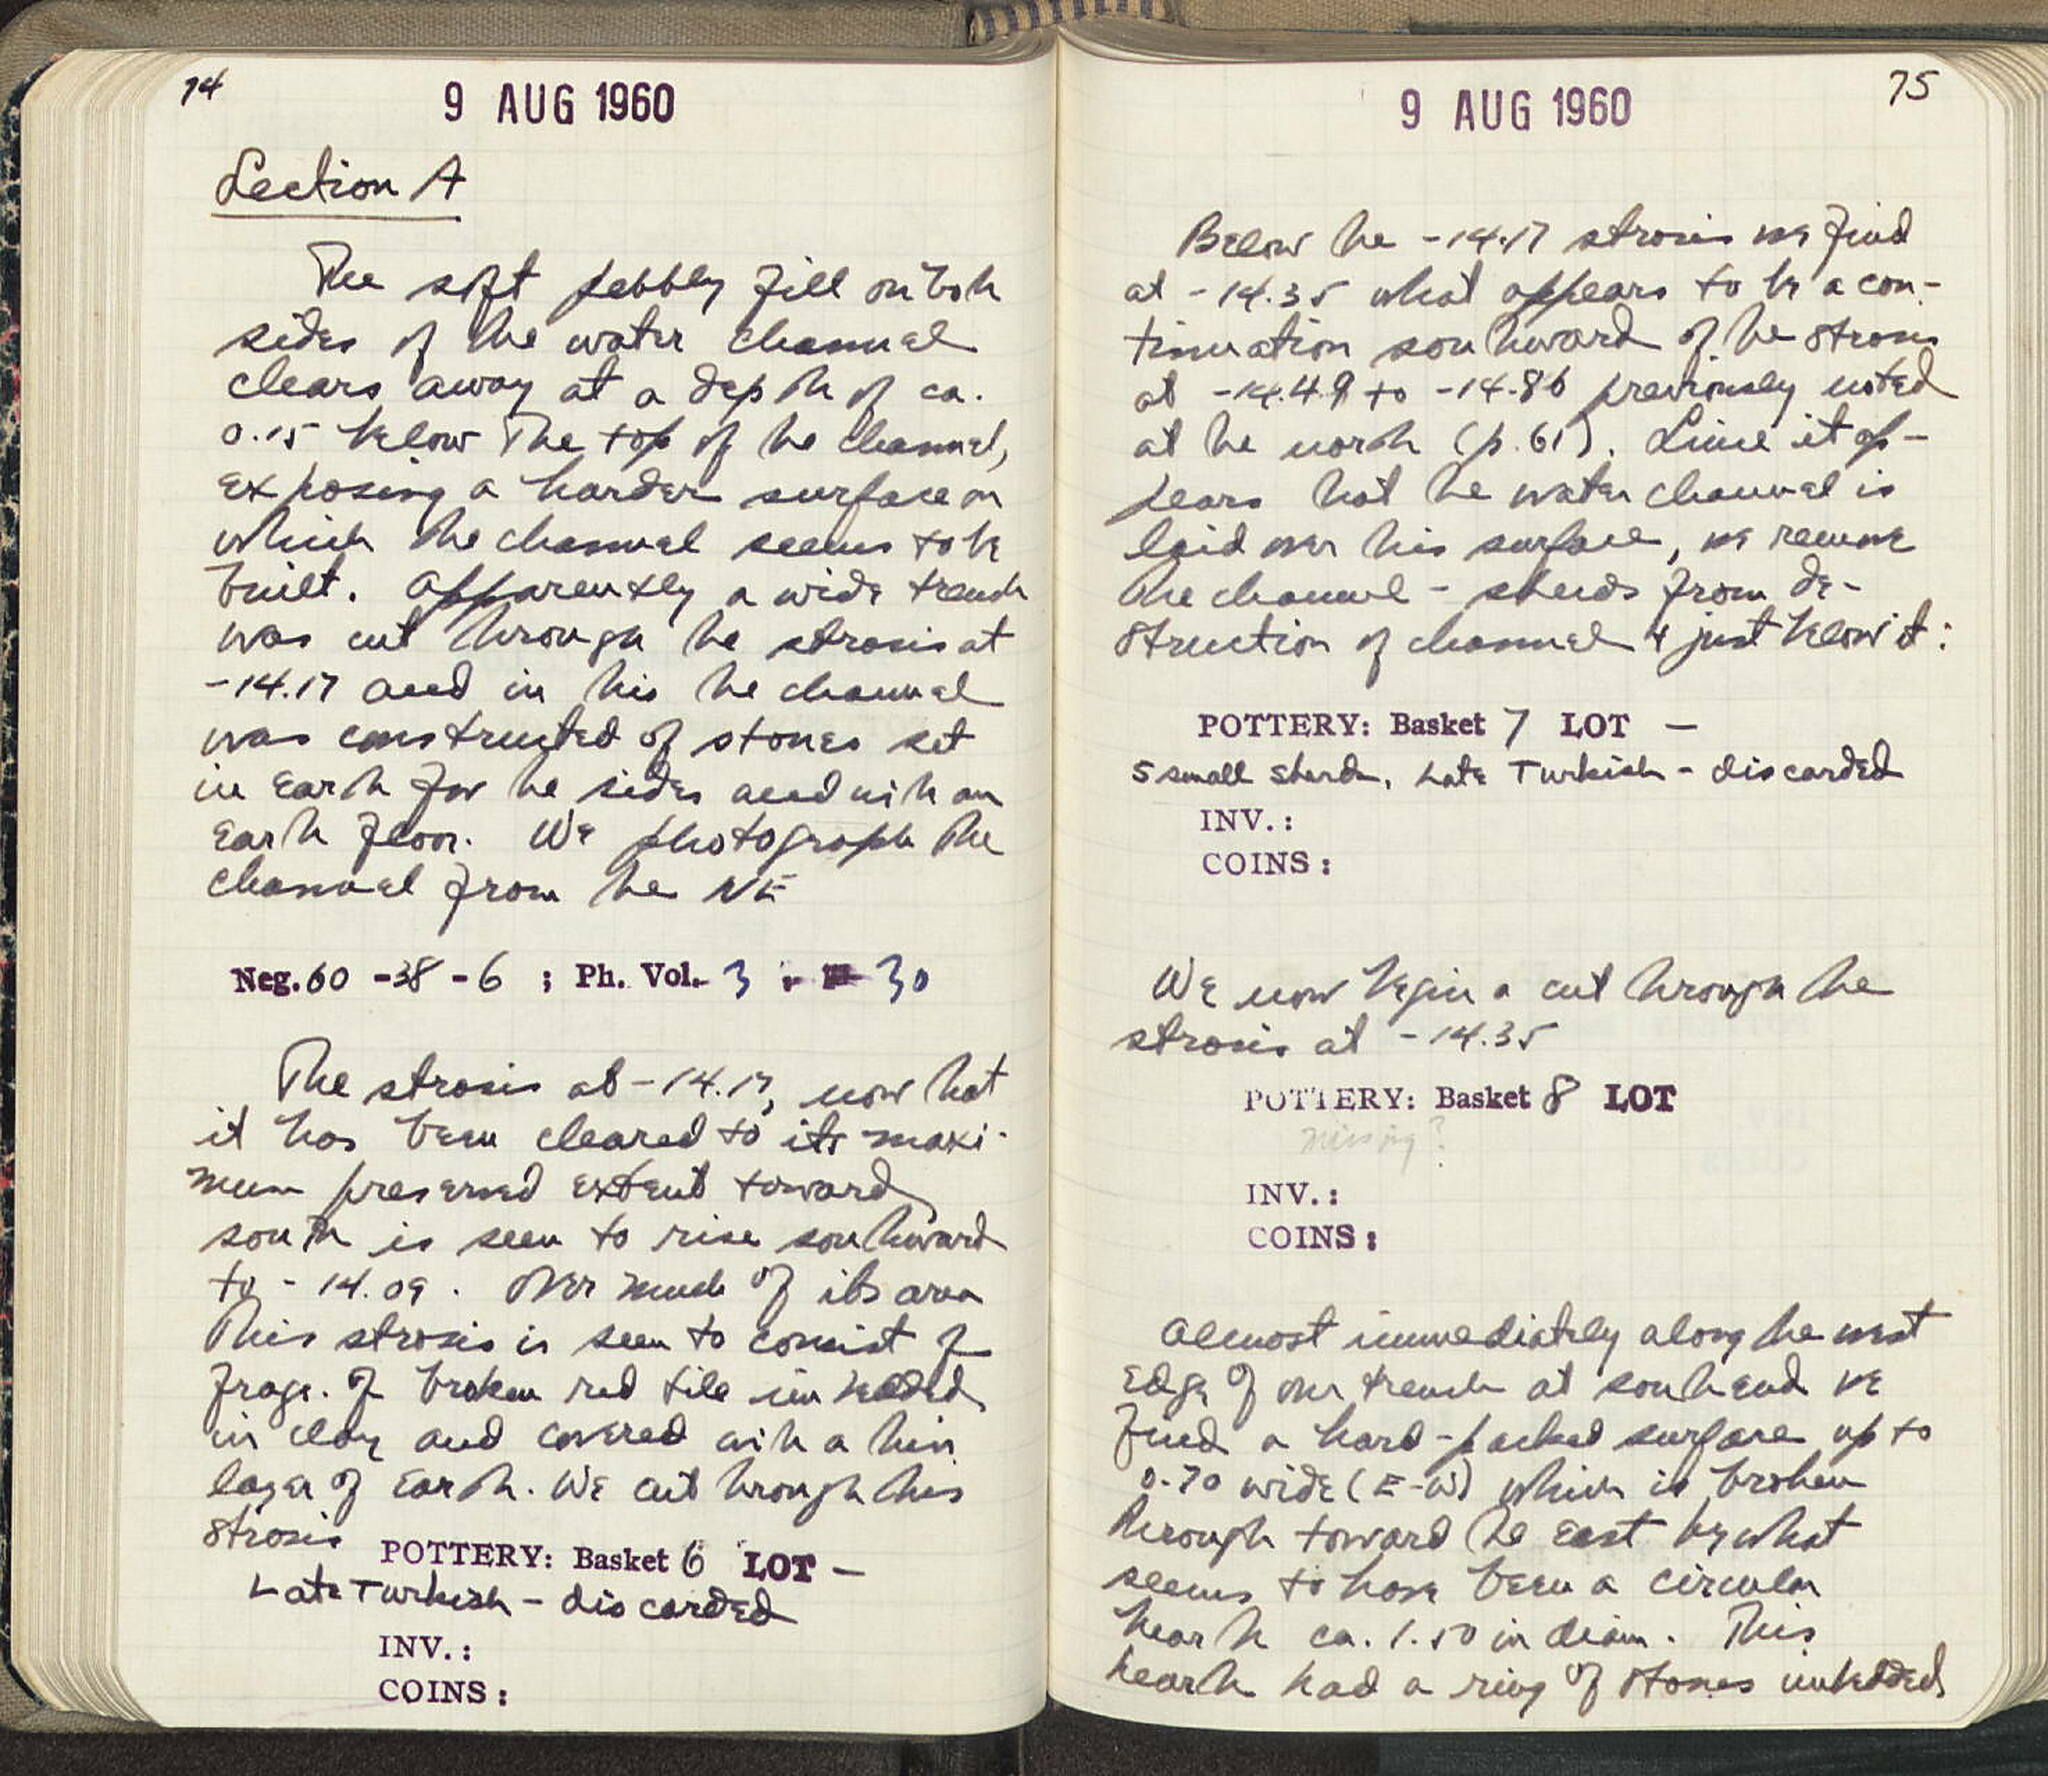 74
9 AUG 1960
Section A
The soft pebbly fill on both
sides of the water channel
clears away at a depth of ca.
0.15 below the top of the channel,
exposing a harder surface on
which the channel seems to be
built. Apparently a wide trench
was cut through the strosis at
-14.17 and in this the channel
was constructed of stones set
in earth for the sides and with an
earth floor. We photograph the
channel from the NE
Neg. 60 -38 - 6 ; Ph. Vol. 3 30
The strosis at -14.17, now that
it has been cleared to its maxi-
mum preserved extent toward
south is seen to rise southward
to -14.09. Over much of its area
this strosis is seen to consist of
frags. of broken red tile imbedded
in clay and covered with a thin
layer of earth. We cut through this
strosis
POTTERY: Basket 6 LOT —
Late Turkish - discarded
INV.:
COINS:
9 AUG 1960
75
Below the -14.17 strosis we find
at -14.35 what appears to be a con-
tinuation southward of the strosis
at -14.49 to -14.86 previously noted
at the north (p. 61). Since it ap-
pears that the water channel is
laid over this surface, we remove
the channel - sherds from de-
struction of channel & just below it:
POTTERY: Basket 7 LOT —
5 small sherds, Late Turkish - discarded
INV.:
COINS:
We now begin a cut through the
strosis at -14.35
POTTERY: Basket 8 LOT
missing?
INV.:
COINS:
Almost immediately along the west
edge of our trench at south end we
find a hard-packed surface up to
0.70 wide (E-W) which is broken
through toward the east by what
seems to have been a circular
hearth ca. 1.50 in diam. This
hearth had a ring of stones imbedded